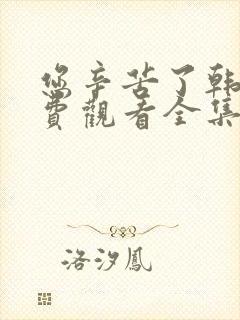 您辛苦了韩
費觀看全集
洛汐鳳